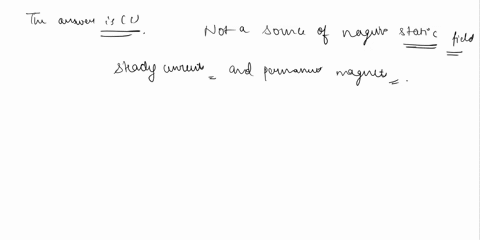 The answer is (c) Not a source of magneto static field
steady current and permanent magnet.